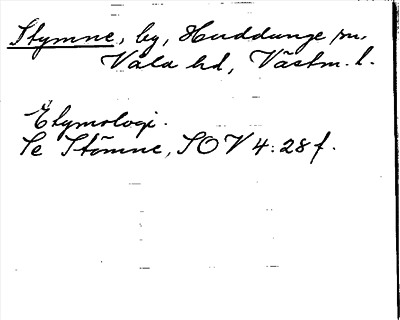 Stymne, by, Huddunge sn.
Våla hd, Västm. l.
Etymologi.
Se Stömne, SOV 4:28 f.